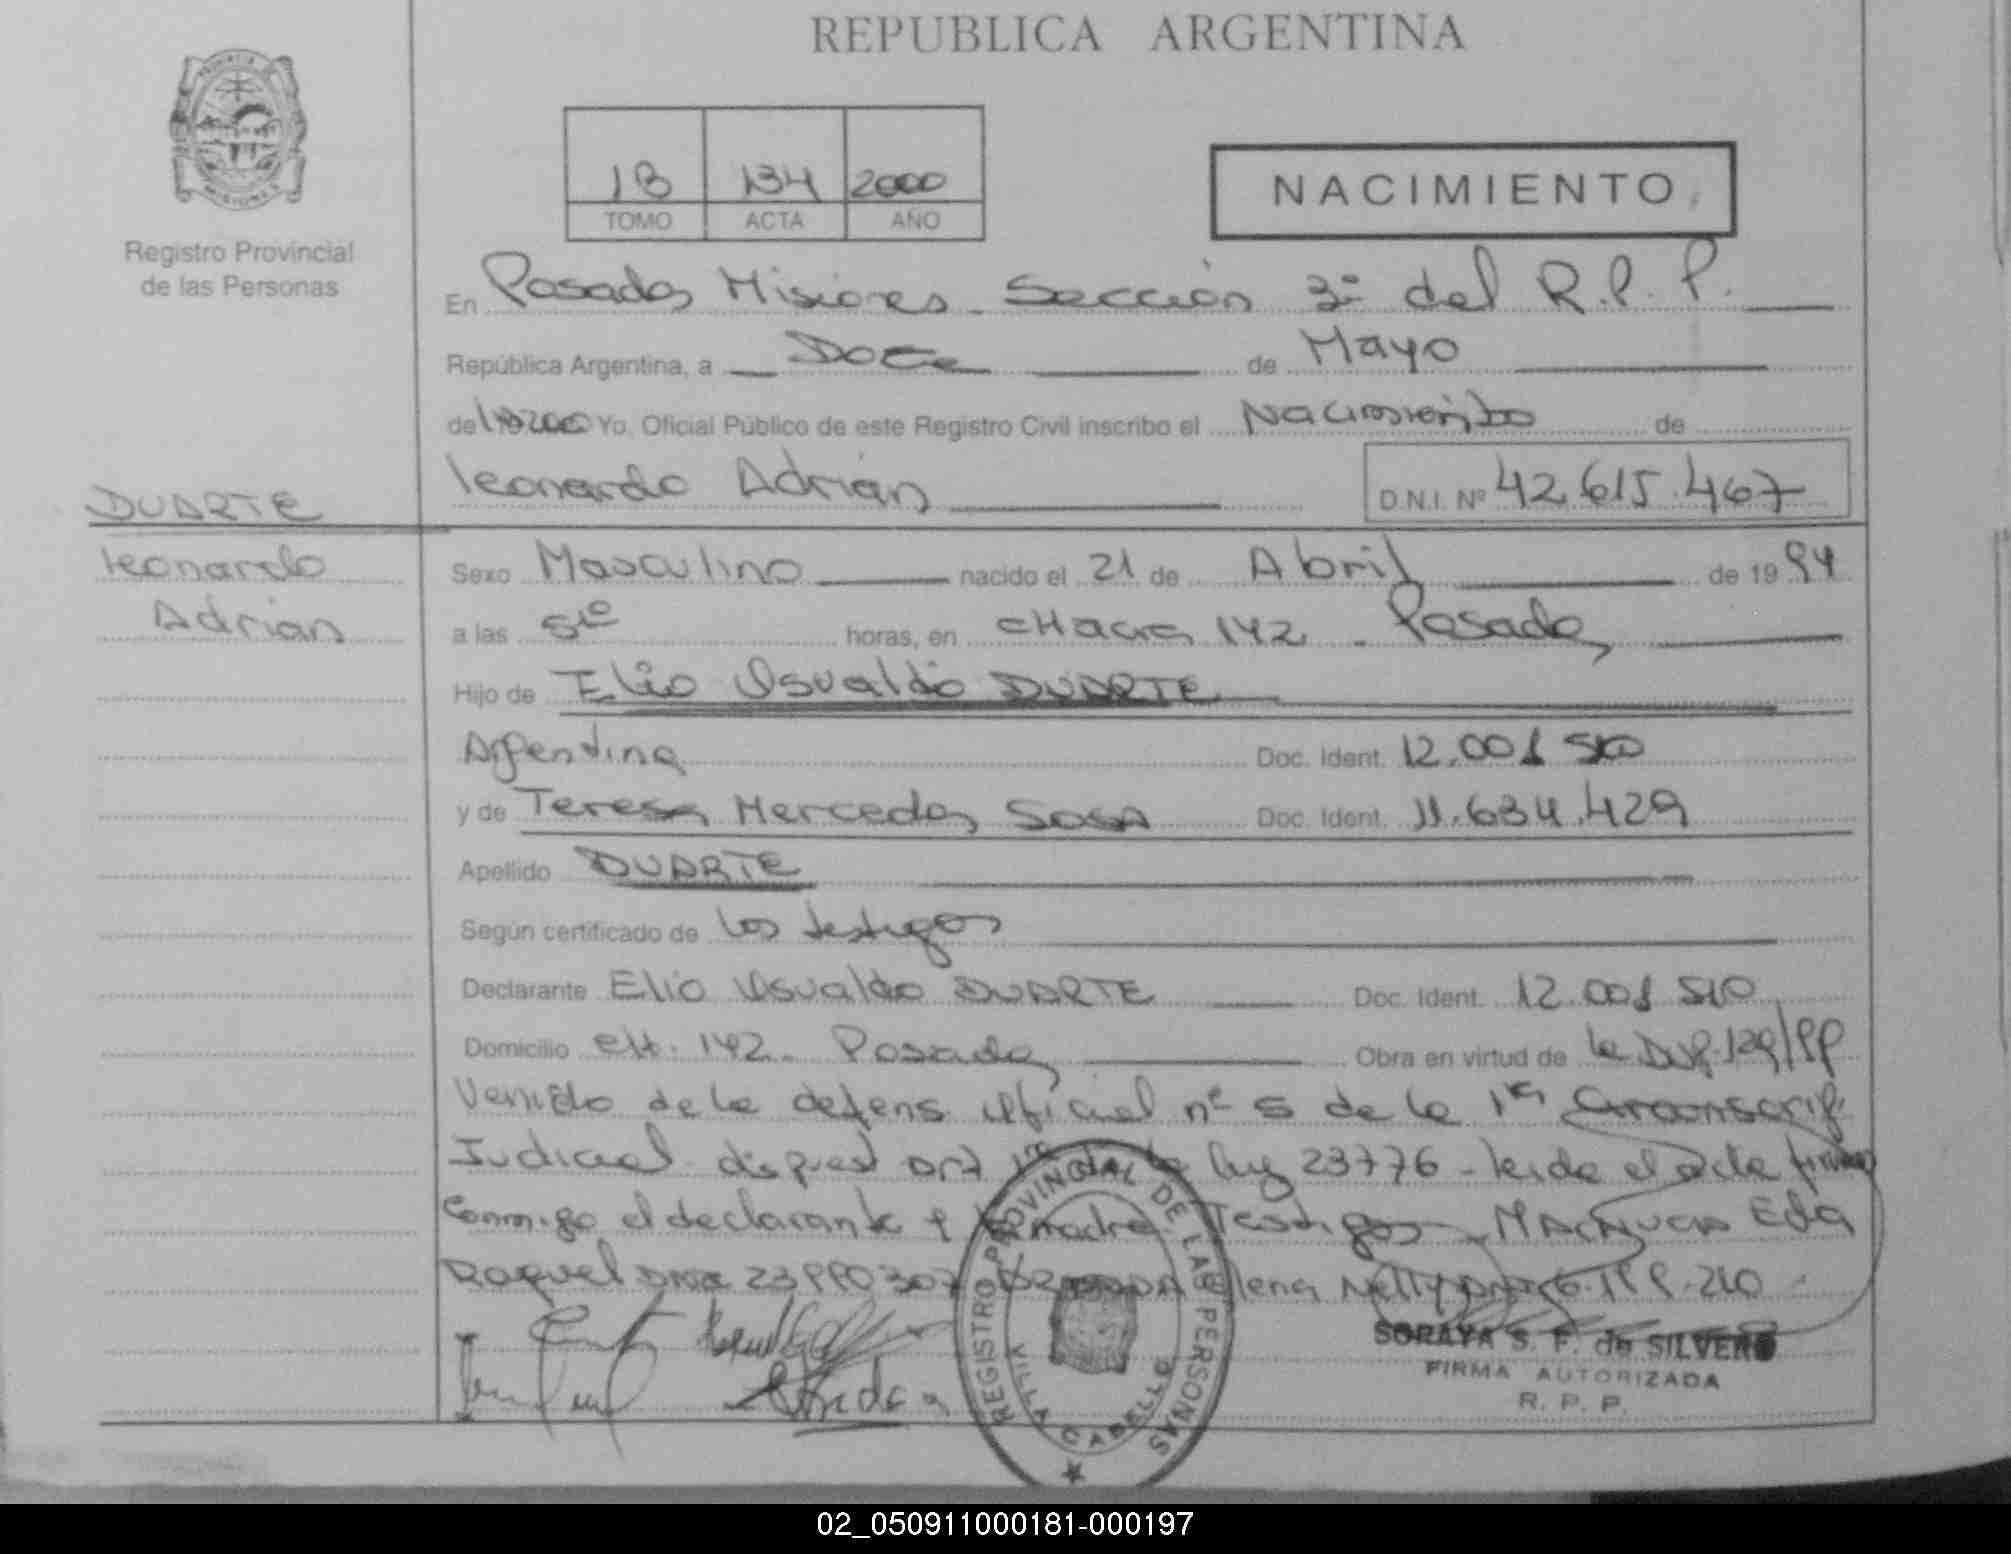 REPUBLICA ARGENTINA
PROVINCIA DE MISIONES
Registro Provincial
de las Personas
1B 134 2000
TOMO ACTA AÑO
NACIMIENTO
En Posadas Misiones Sección 3ª del R.P.P.
República Argentina, a Doce de Mayo
de 2000 Yo, Oficial Público de este Registro Civil inscribo el Nacimiento de
Leonardo Adrián D.N.I. Nº 42.615.467
DUARTE
Leonardo
Adrian
Sexo Masculino nacido el 21 de Abril de 1994
a las 5 horas, en CHacra 142 - Posadas
Hijo de Elio Osvaldo DUARTE
Argentina Doc. Ident. 12.001 510
y de Teresa Mercedes SOSA Doc. Ident. 11.634.429
Apellido DUARTE
Según certificado de los testigos
Declarante Elio Osvaldo DUARTE Doc. Ident. 12.001 510
Domicilio CH. 142 - Posadas Obra en virtud de la
de la defens. Oficial nº 5 de la 1ra Circonscrip.
Judicial ley 23776 - leida el acta firma
Conmigo el declarante y la madre Testigos Eda
Raquel Elena Nelly
REGISTRO PROVINCIAL DE LAS PERSONAS
VILLA CABELLO
SORAYA S. F. de SILVERO
FIRMA AUTORIZADA
R. P. P.
02_050911000181-000197